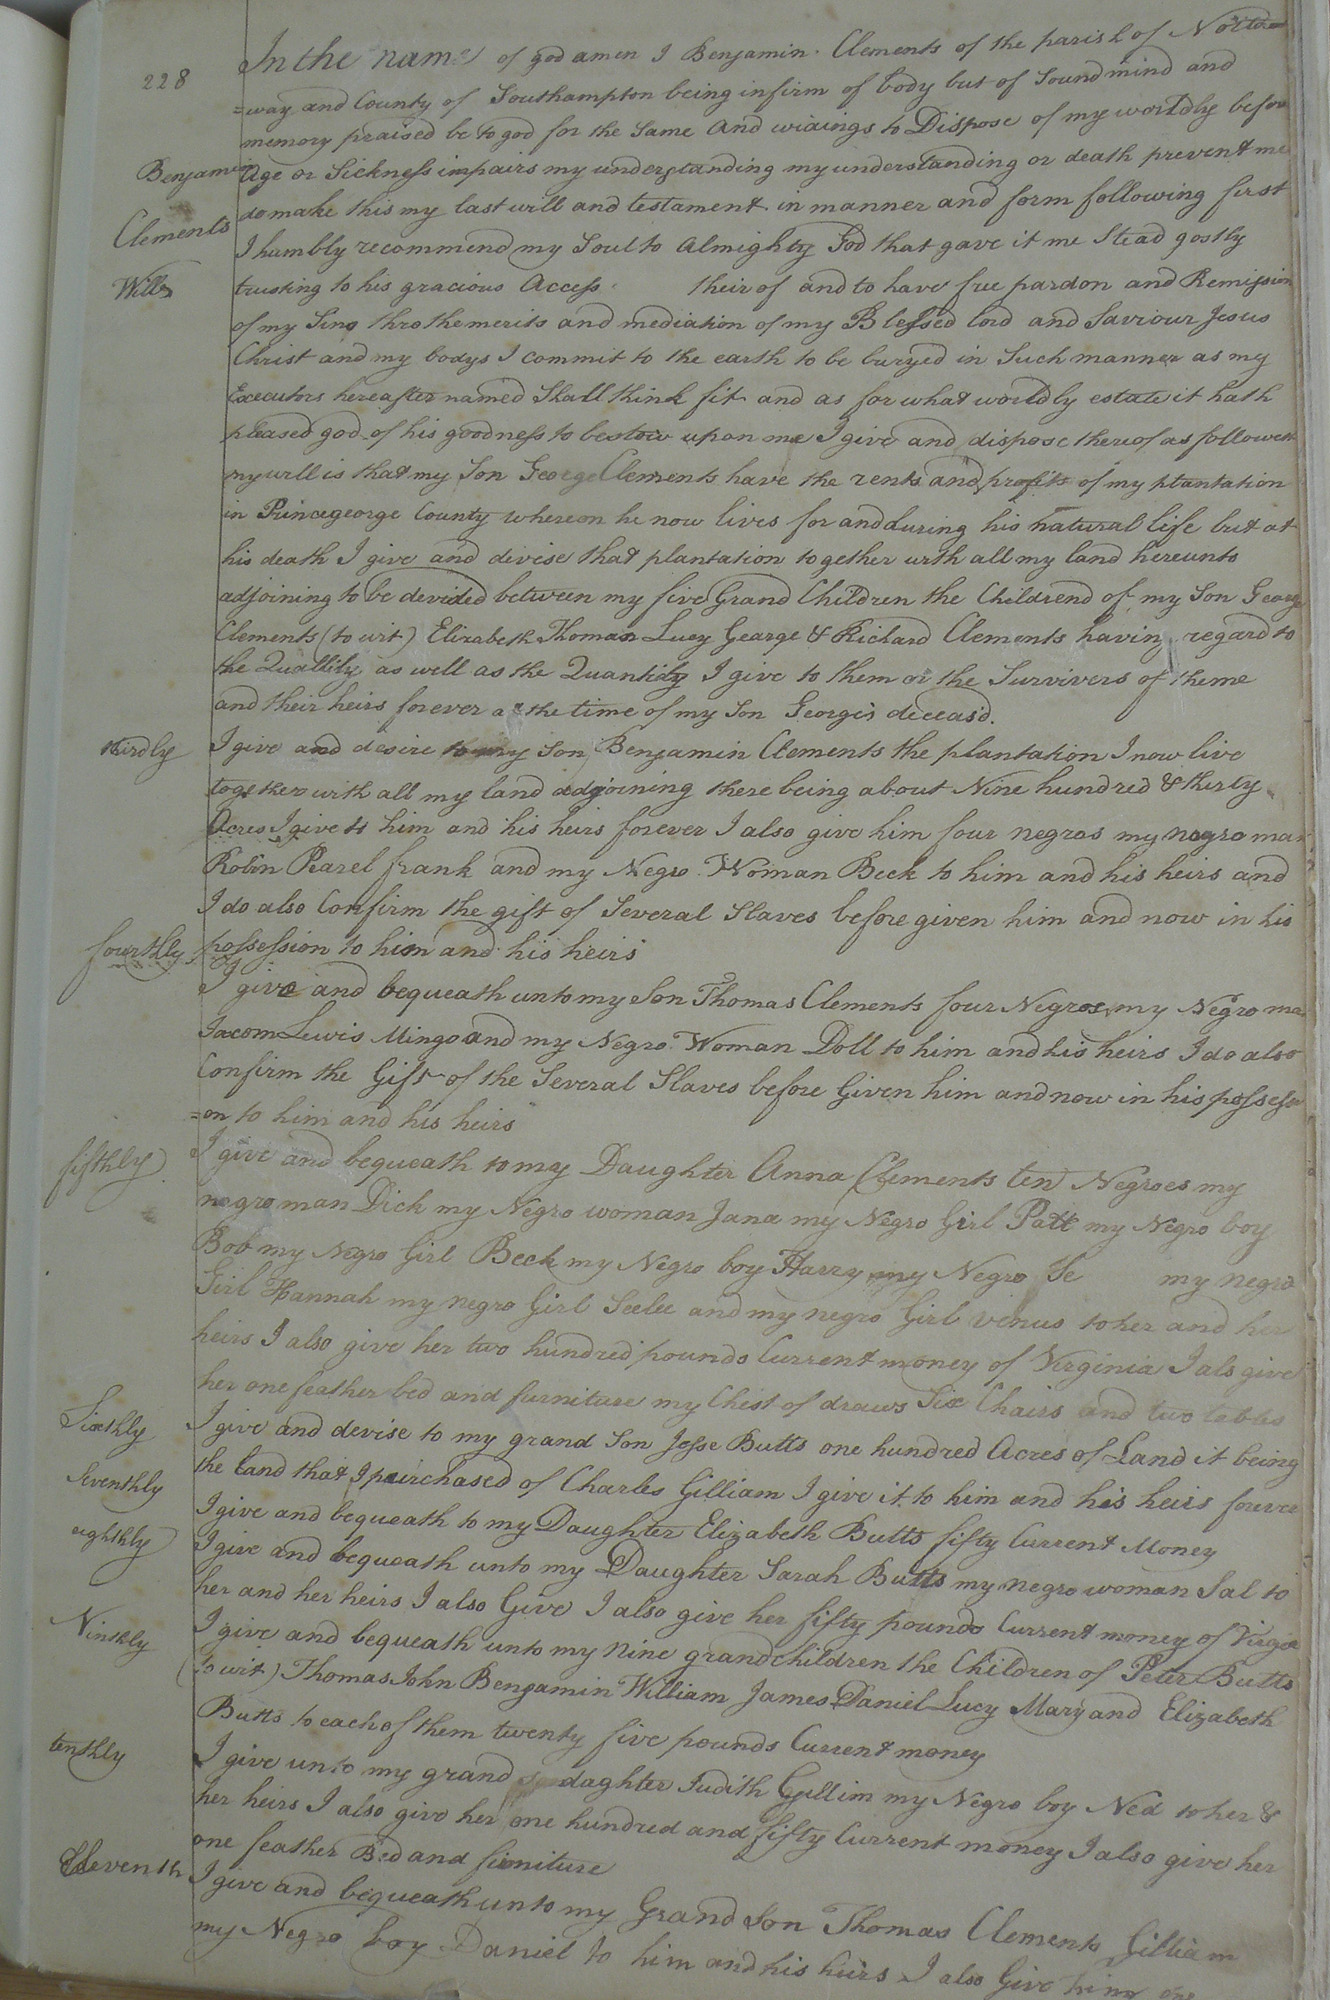 228
Benjamin
Clements
Will
In the name of god amen I Benjamin Clements of the parish of Notta
=way and County of Southampton being infirm of body but of Sound mind and
memory praised be to god for the Same and to Dispose of my worldly before
age or Sickness impairs my understanding my understanding or death prevent me
do make this my last will and testament in manner and form following first
I humbly recommend my Soul to Almighty God that gave it me Stead gostly
trusting to his gracious Access theirof and to have free pardon and Remission
of my Sins thro the merits and mediation of my Blessed lord and Saviour Jesus
Christ and my bodys I commit to the earth to be buryed in Such manner as my
Executors hereafter named Shall think fit and as for what worldly estate it hath
pleased god of his goodness to bestow upon me I give and dispose thereof as followeth
my will is that my Son George Clements have the rents and profits of my plantation
in Princegeorge County whereon he now lives for and during his natural life but at
his death I give and devise that plantation together with all my land hereunto
adjoining to be devided between my five Grand Children the Childrend of my Son George
Clements (to wit) Elizabeth Thomas Lucy George & Richard Clements having regard to
the Quallity as well as the Quantity I give to them or the Survivers of theme
and their heirs forever at the time of my Son Georges deceasd.
thirdly
I give and desire to my Son Benjamin Clements the plantation I now live
together with all my land adjoining there being about Nine hundred & thirty
Acres I give to him and his heirs forever I also give him four negros my negro man
Robin Pearel frank and my Negro Woman Beck to him and his heirs and
I do also Confirm the gift of Several Slaves before given him and now in his
possession to him and his heirs
fourthly
I give and bequeath unto my Son Thomas Clements four Negroes my Negro ma
Jacom Lewis Mingo and my Negro Woman Doll to him and his heirs I do also
Confirm the Gift of the Several Slaves before Given him and now in his possessi
=on to him and his heirs
fifthly
I give and bequeath to my Daughter Anna Clements ten Negroes my
negro man Dick my Negro woman Jana my Negro Girl Patt my Negro boy
Bob my Negro Girl Beck my Negro boy Harry my Negro Je my negro
Girl Hannah my negro Girl Seelee and my negro Girl venus to her and her
heirs I also give her two hundred pounds Current money of Virginia I als give
her one feather bed and furniture my Chest of draws Six Chairs and two tables
Sixthly
I give and devise to my grand Son Jesse Butts one hundred Acres of Land it being
the land that I purchased of Charles Gilliam I give it to him and his heirs forever
Seventhly
I give and bequeath to my Daughter Elizabeth Butts fifty Current Money
eighthly
I give and bequeath unto my Daughter Sarah Butts my negro woman Sal to
her and her heirs I also Give I also give her fifty pounds Current money of Virgia
Ninthly
I give and bequeath unto my Nine grandchildren the Children of Peter Butts
(to wit) Thomas John Benjamin William James Daniel Lucy Mary and Elizabeth
Butts to each of them twenty five pounds Current money
tenthly
I give unto my grand daghter Judith Gyllim my Negro boy Ned to her &
her heirs I also give her one hundred and fifty Current money I also give her
one feather Bed and firniture
Eleventh
I give and bequeath unto my Grand Son Thomas Clements Gilliam
my Negro boy Daniel to him and his heirs I also Give him one